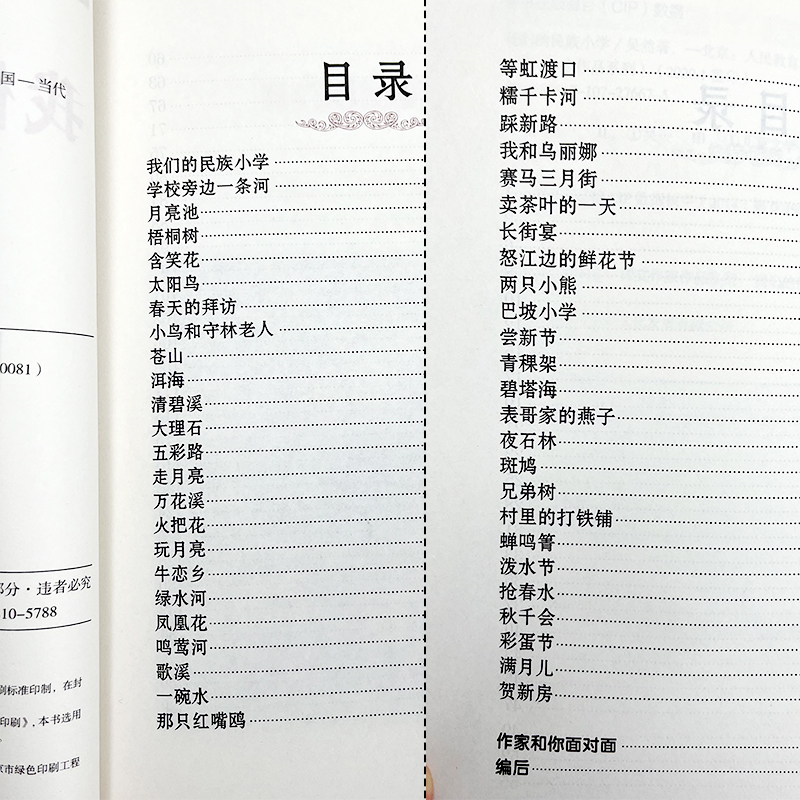 国—当代
0081）
部分·违者必究
10-5788
刷标准印制，在封
印刷》，本书选用
京市绿色印刷工程
目录
我们的民族小学
学校旁边一条河
月亮池
梧桐树
含笑花
太阳鸟
春天的拜访
小鸟和守林老人
苍山
洱海
清碧溪
大理石
五彩路
走月亮
万花溪
火把花
玩月亮
牛恋乡
绿水河
凤凰花
鸣莺河
歌溪
一碗水
那只红嘴鸥
等虹渡口
糯千卡河
踩新路
我和乌丽娜
赛马三月街
卖茶叶的一天
长街宴
怒江边的鲜花节
两只小熊
巴坡小学
尝新节
青稞架
碧塔海
表哥家的燕子
夜石林
斑鸠
兄弟树
村里的打铁铺
蝉鸣箐
泼水节
抢春水
秋千会
彩蛋节
满月儿
贺新房
作家和你面对面
编后